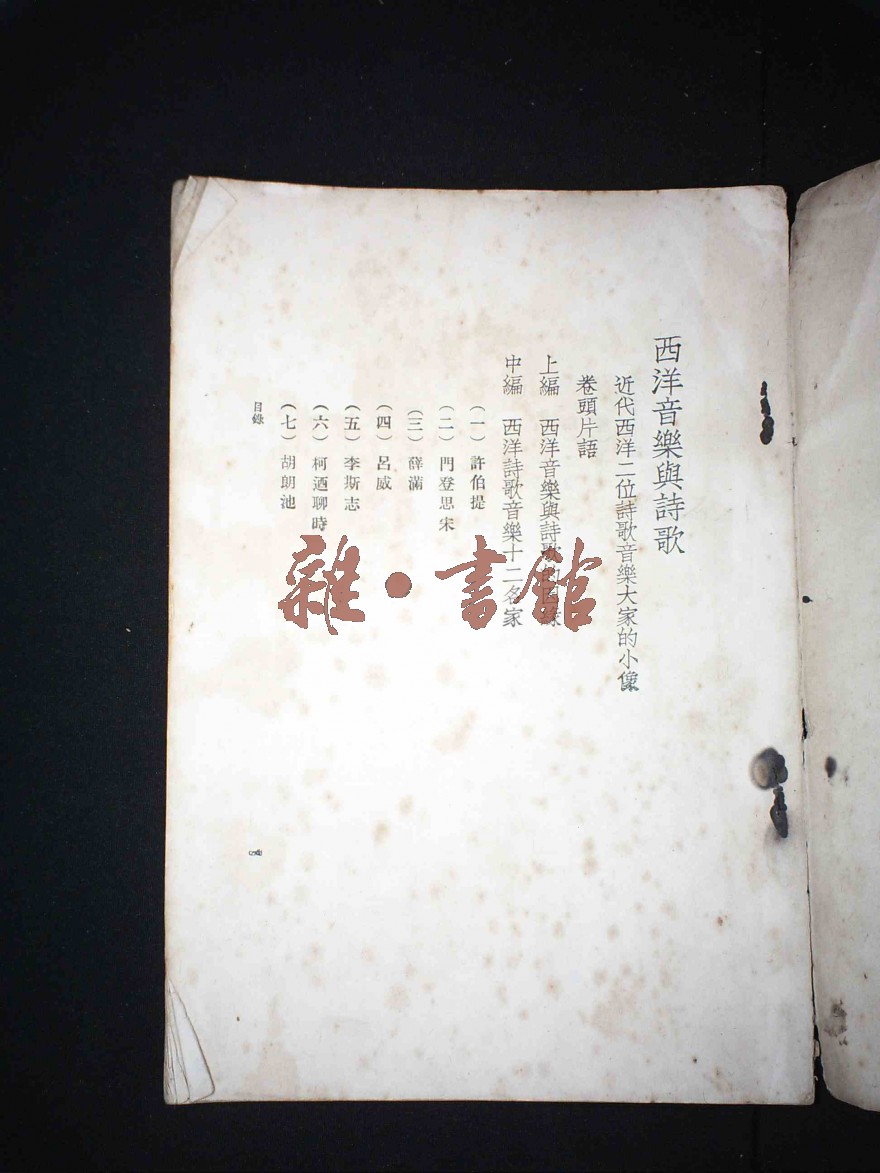 西洋音樂與詩歌
近代西洋二位詩歌音樂大家的小像
卷頭片語
上編　西洋音樂與詩歌的因緣
中編　西洋詩歌音樂十二名家
(一)許伯提
(二)門登思宋
(三)薛滿
(四)呂威
(五)李斯志
(六)柯迺聊時
(七)胡朗池
目錄
雜·書館